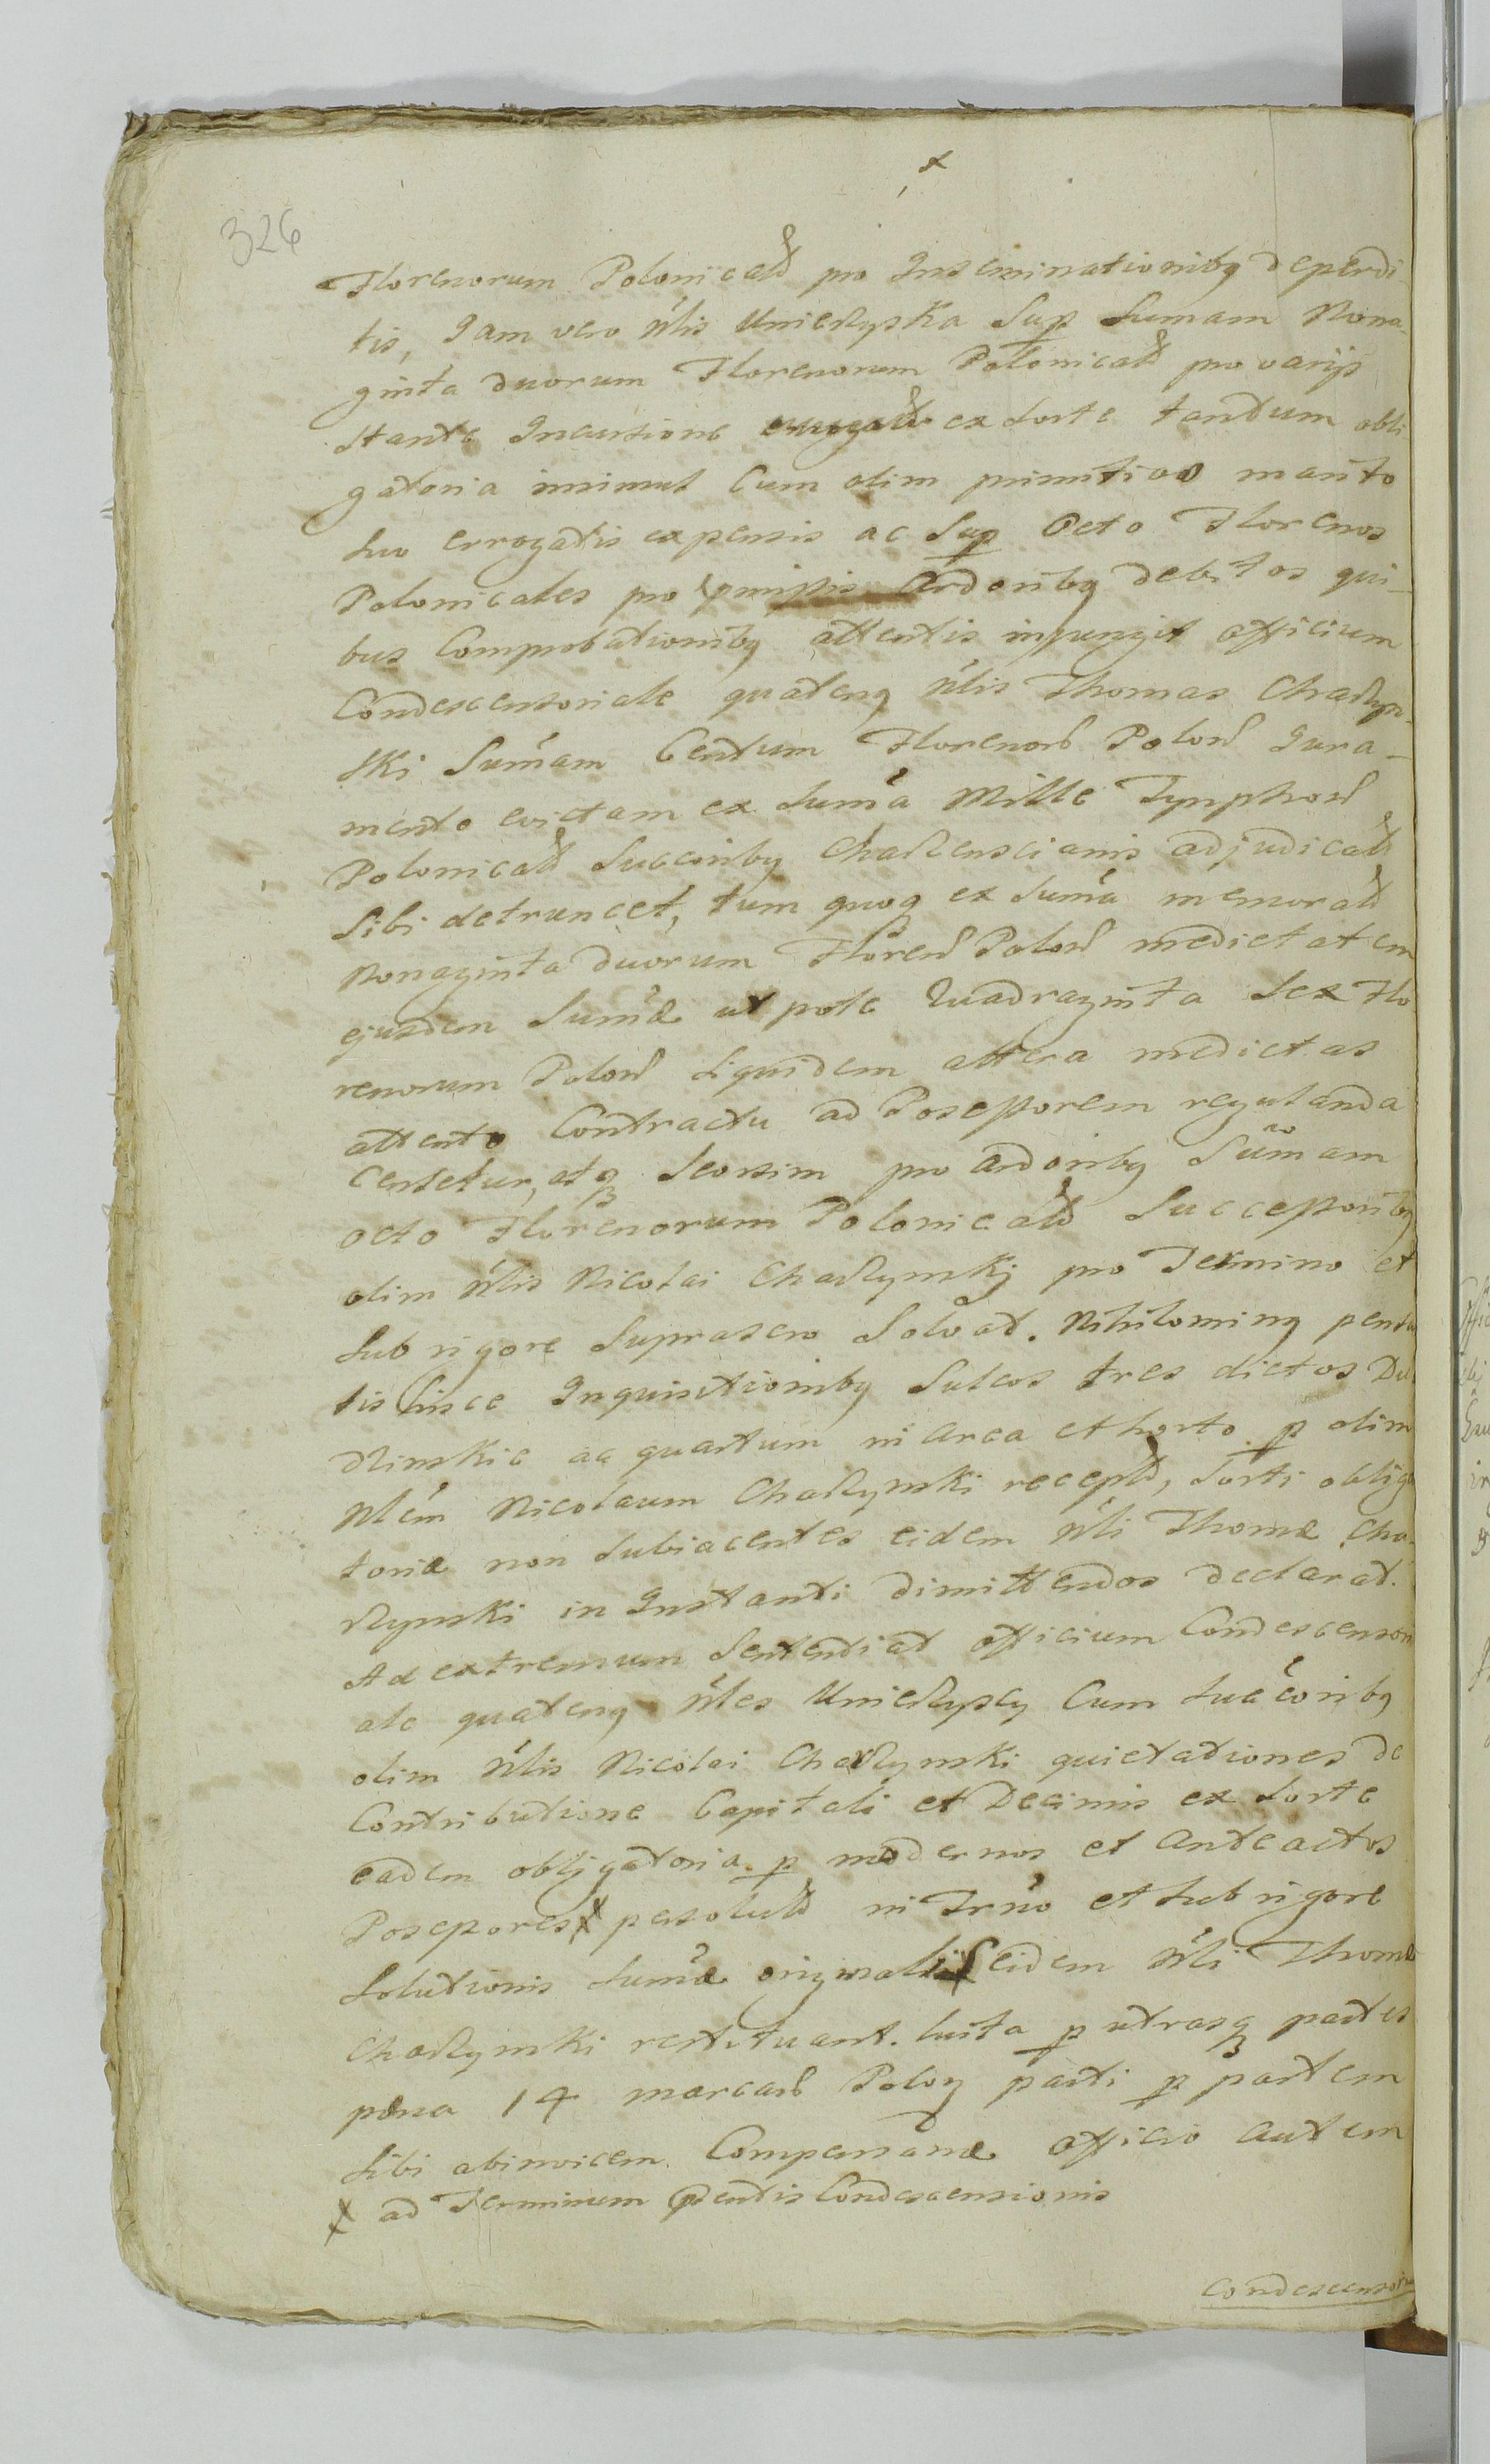 326
Florenorum Polonicald pro Inseminationibq deperdi-
tis, Jam vero Nlis Uniedzyska Sup Sumam Nona-
ginta duorum Florenorum Polonicald pro varijs
stante Incursione ex sorte tantum obli-
gatoria insimul Cum olim primitivo marito
suo errogatis expensis ac Sup Octo Florenos
Polonicales pro Ardoribq debitos qui-
bus Comprobationibq attentis injungit officium
Condescensoriale quatenq Nlis Thomas Chadzyn-
ski Sumam Centum Florenor Polon Jura-
mento evictam ex suma Mille Tynphon
Polonicald Succoribq adjudicald
sibi detruncet, tum quoq ex suma memorald
Nonaginta duorum Floren Polon medietatem
ejusdem Sumæ utpote Quadraginta Sex Flo
renorum Polon siquidem altera medietas
attento Contractu ad Possessorem regulanda
Censetur, atq Seorsim pro ardoribq Sumam
octo Florenorum Polonicald Successoribq
olim Nlis Nicolai Chadzynskj pro Termino et
sub rigore Suprascro Solvat. Nihilominq
tis hisce Inquisitionibq Sulcos tres dictos
ac quartum in Area et horto p olim
Nlem Nicolaum Chadzynski recepld, Sorti obliga
toriæ non subiacentes eidem Nli Thomæ Cha-
dzynski in Instanti dimittendos declarat.
Ad extremum Sententiat officium Condescensori
ale quatenq Nles Uniedzyscy Cum succoribq
olim Nlis Nicolai Chadzynski quietationes de
Contributione Capitali et Decimis ex sorte
eadem obligatoria p modernos et Anteactos
Possessores x persolutd in Trno et sub rigore
Solutionis sumæ originalis eidem Nli Thomæ
Chadzynski restituant. luita p utrasq partes
pæna 14 marcar Polon parti p partem
sibi abinvicem Compensandæ officio autem
x ad Terminum pntis Condescensionis
Condescensori